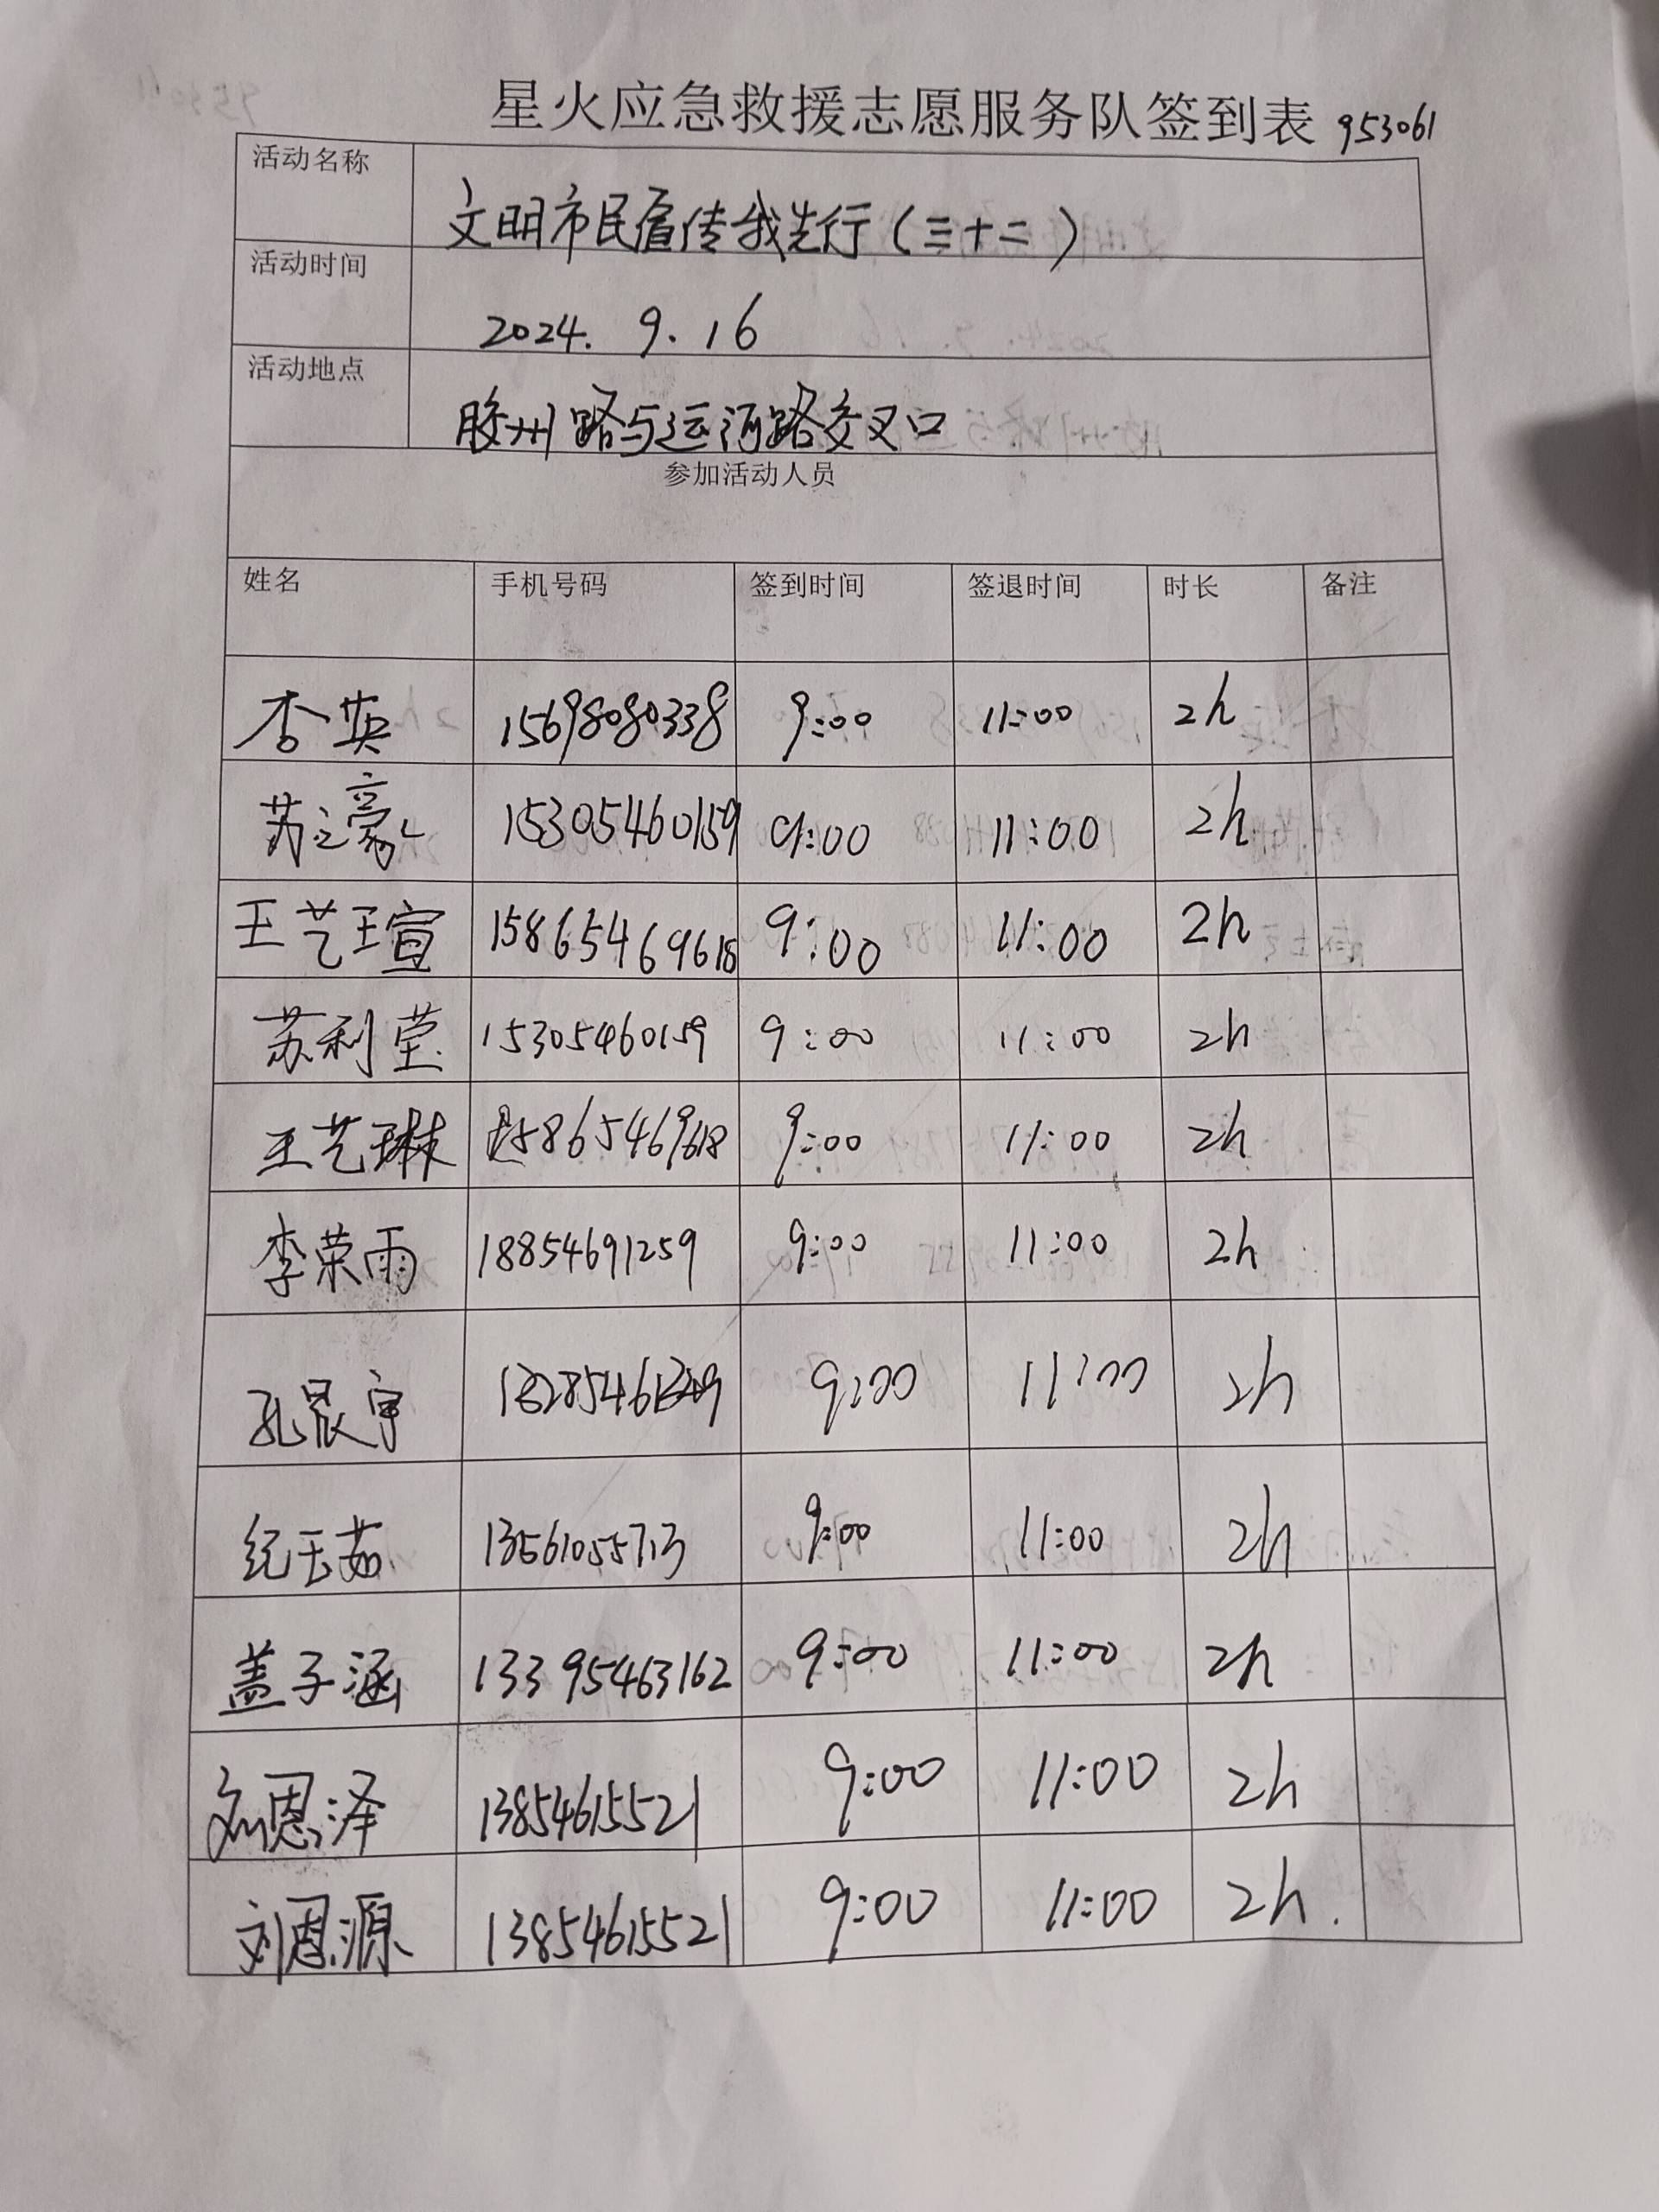 星火应急救援志愿服务队签到表 953061
活动名称 文明市民宣传我先行（三十二）
活动时间 2024. 9. 16
活动地点 胶州路与运河路交叉口
参加活动人员
姓名 手机号码 签到时间 签退时间 时长 备注
李英 15698080338 9:00 11:00 2h
苏之豪 15305460159 9:00 11:00 2h
王艺瑄 15865469618 9:00 11:00 2h
苏利莹 15305460159 9:00 11:00 2h
王艺琳 15865469618 9:00 11:00 2h
李荣雨 18854691259 9:00 11:00 2h
孔晨宇 9:00 11:00 2h
纪玉茹 13561055713 9:00 11:00 2h
盖子涵 13395463162 9:00 11:00 2h
刘恩泽 13854615521 9:00 11:00 2h
刘恩源 13854615521 9:00 11:00 2h.